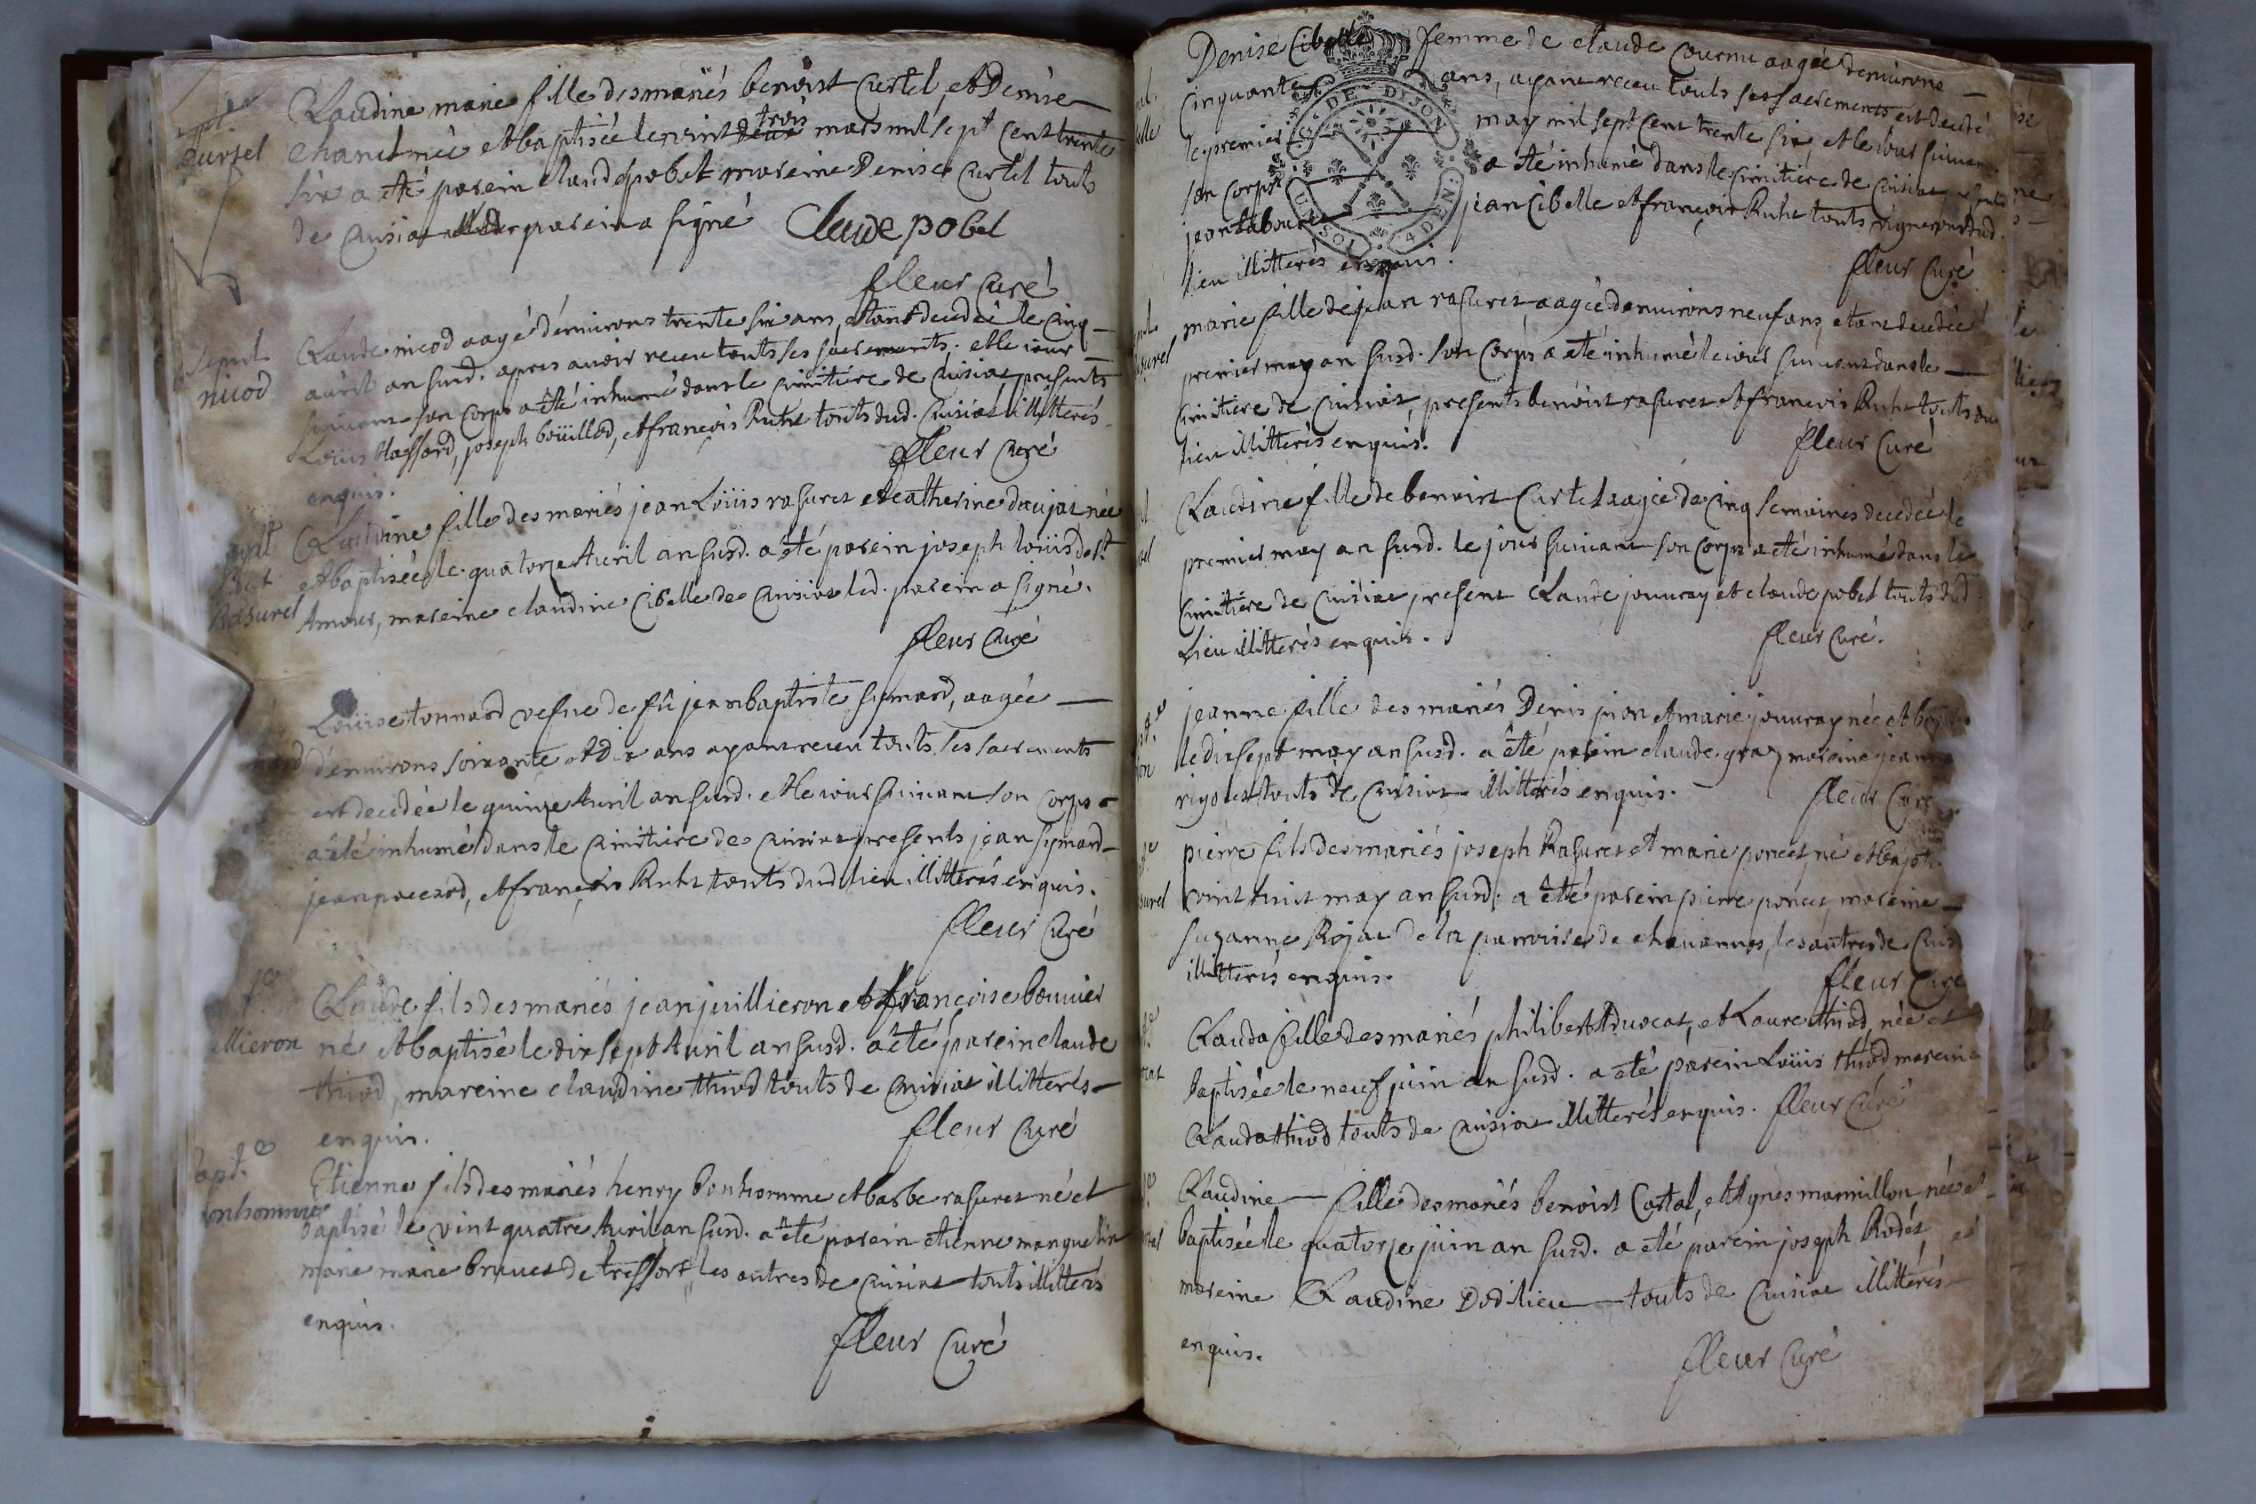 bapt.e
Curtel
Claudine marie fille des mariés benoist Curtel, et Denise
chanel née et baptisée le vint deux trois mars mil sept cent trente
six a eté parein claude pobel mareine Denise Curtel touts
de Cuisiat parein a signé Claude pobel
fleur Curé
sepul.
nicod
Claude nicod aagé d'environs trente six ans, etant decedé le cinq
avril an susd. apres avoir receu touts ses sacrements. et le iour
suivant son corps a été inhumé dans le cimitiere de Cuisiat presents
Loüis Massard, joseph boüillod, et françois Ruhe touts dud. Cuisiat illitterés
enquis.
fleur Curé
bapt.e
Rasurel
Claudine fille des mariés jean Loüis rasurer et catherine daujat née
et baptisée le quatorze Avril an susd. a été parein joseph loüis de st
Amour, mareine claudine Cibelle de Cuisiat led. parein a signé.
fleur Curé
Loüise tonnard vefve de fû jean baptiste symard, aagée
d'environs soixante et dix ans ayant receu touts ses sacrements
est decedée le quinze Avril an susd. et le iour suivant son corps
a été inhumé dans le Cimitiere de Cuisiat presents jean symard
jean poccard, et françois Ruhe touts dud. lieu illitterés enquis.
fleur Curé
illieron
Claude fils des mariés jean juillieron et françoise bouvier
né et baptisé le dix sept Avril an susd. a été parein claude
thiod, mareine claudine thiod touts de Cuisiat illitterés
enquis.
fleur Curé
bapt.e
bonhomme
Etienne fils des mariés henry bonhomme et barbe rasurer né et
baptisé le vint quatre Avril an susd. a été parein etienne manguelin
marie marie bruver de tressort, les autres de Cuisiat touts illitterés
enquis.
fleur Curé
Denise Cibelle femme de claude Cournu aagée d'environs
Cinquante ans, ayant receu touts ses sacrements est decedé
le premier may mil sept cent trente six, et le iour suivant
son corps a été inhumé dans le Cimitiere de Cuisiat presents
jean Labourier jean Cibelle et françois Ruhe touts vignerons dud.
lieu illitterés enquis.
fleur Curé
marie fille de jean rasurer aagée d'environs neuf ans, etant decedée
premier may an susd. son corps a été inhumé le iour suivant dans le
Cimitiere de Cuisiat, presents benoist rasurer et françois Ruhe touts du
lieu illitterés enquis.
fleur Curé
Claudine fille de benoist Curtel aagée de Cinq semaines decedée le
premier may an susd. le jour suivant son corps a été inhumé dans le
Cimitiere de Cuisiat present Claude jouvray et claude pobel touts dud.
Lieu illitterés enquis.
fleur Curé.
jeanne fille des mariés Denis pion et marie jouvray née et bapt
le dix sept may an susd. a été parein claude gray mareine jeanne
rigolet touts de Cuisiat illitterés enquis.
fleur Curé
pierre fils des mariés joseph Rasurer et marie poncet né et bapt.
vint huit may an susd. a été parein pierre poncet, mareine
suzanne Rojat de la parroisse de chavannes, les autres de Cuis
illitterés enquis.
fleur Curé
Clauda fille des mariés philibert Aduocat, et Laure thiod, née et
baptisée le neuf juin an susd. a été parein Loüis thiod mareine
Clauda thiod touts de Cuisiat illitterés enquis. fleur Curé
Claudine fille des mariés benoist Costal, et Agnes marmillon née et
baptisée le quatorze juin an susd. a eté parein joseph Rodet et
mareine Claudine Dodilieu touts de Cuisiat illitterés
enquis.
fleur Curé